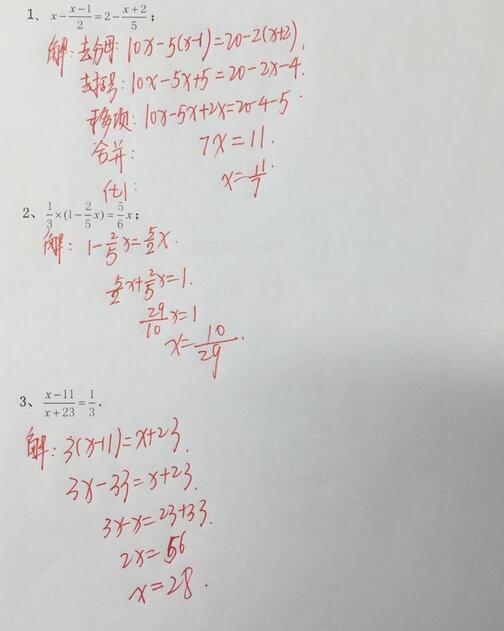 1、x-\frac{x-1}{2}=2-\frac{x+2}{5};
解:去分母:10x-5(x-1)=20-2(x+2).
去括号:10x-5x+5=20-2x-4.
移项:10x-5x+2x=20-4-5.
合并: 7x=11.
化1: x=\frac{11}{7}.
2、\frac{1}{3}×(1-\frac{2}{5}x)=\frac{5}{6}x;
解:1-\frac{2}{5}x=\frac{5}{2}x.
\frac{5}{2}x+\frac{2}{5}x=1.
\frac{29}{10}x=1
x=\frac{10}{29}.
3、\frac{x-11}{x+23}=\frac{1}{3}.
解:3(x-11)=x+23.
3x-33=x+23.
3x-x=23+33.
2x=56
x=28.